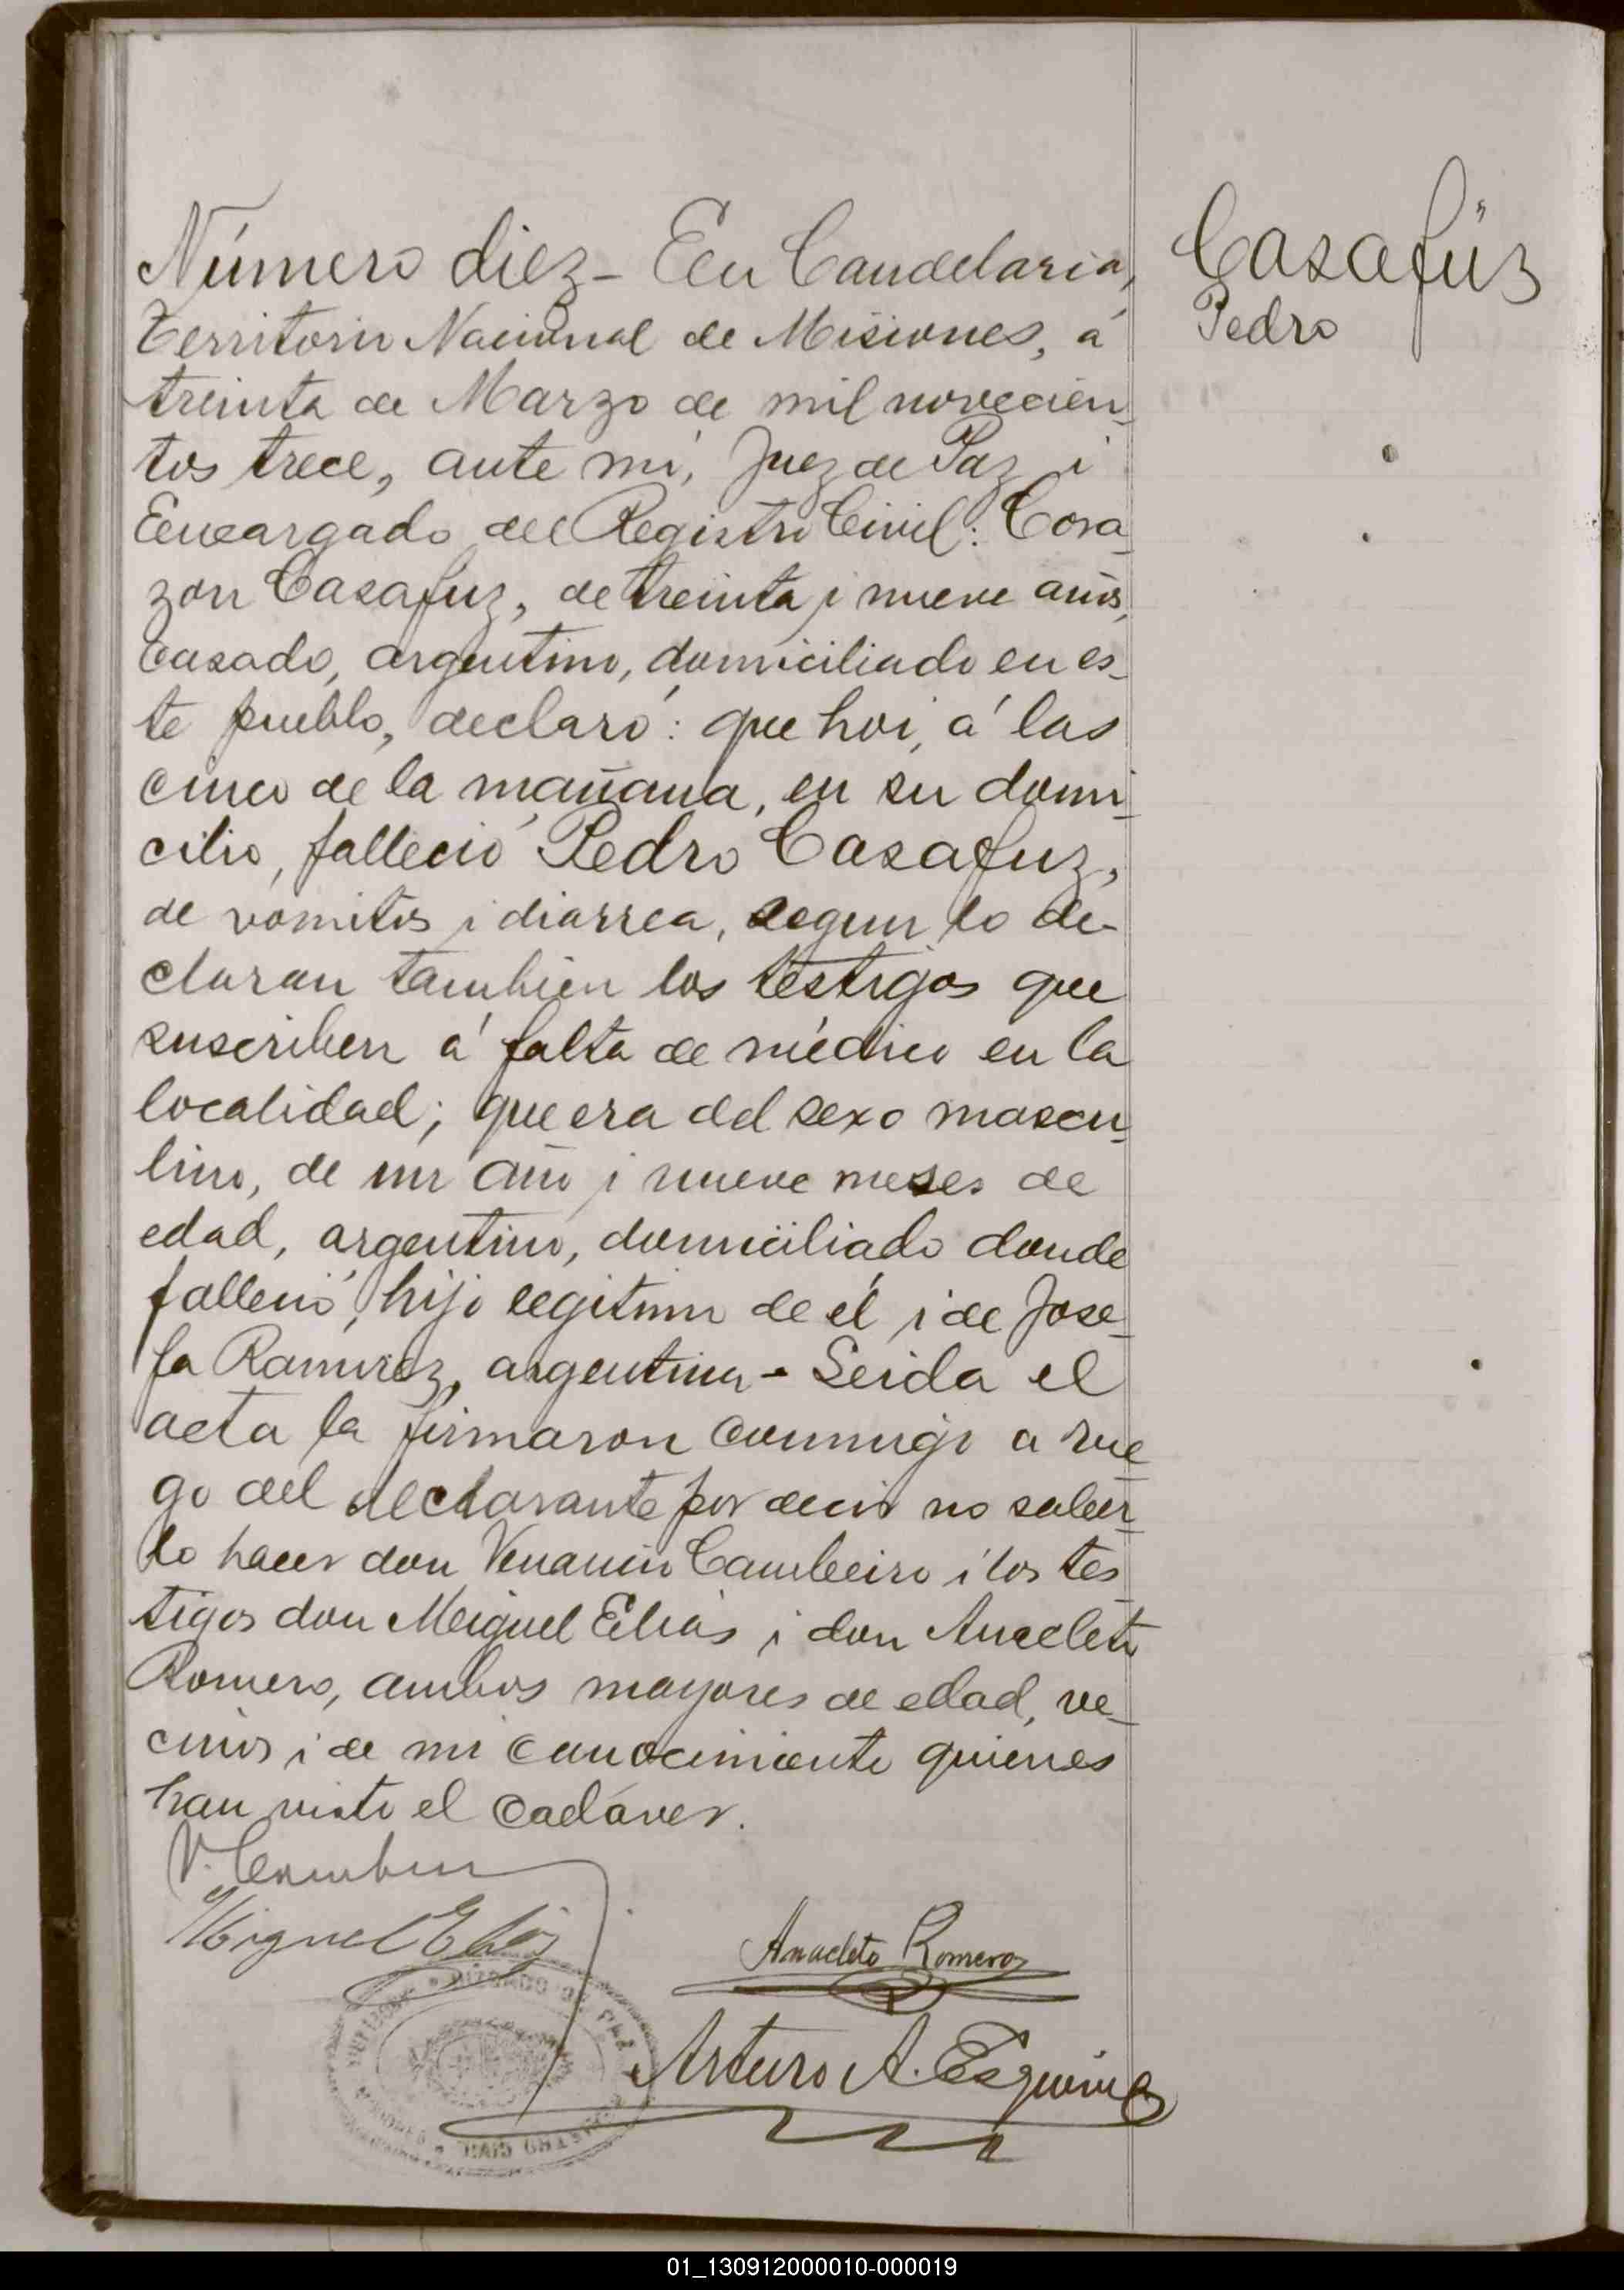 Número diez - En Candelaria,
Territorio Nacional de Misiones, á
treinta de Marzo de mil novecien_
tos trece, ante mí, Juez de Paz i
Encargado del Registro Civil: Cora_
zon Casafuz, de treinta i nueve años,
casado, argentino, domiciliado en es_
te pueblo, declaró: que hoi, á las
cinco de la mañana, en su domi_
cilio, falleció Pedro Casafuz,
de vomitos i diarrea, segun lo de-
claran tambien los testigos que
suscriben á falta de médico en la
localidad; que era del sexo mascu_
lino, de un año i nueve meses de
edad, argentino, domiciliado donde
falleció, hijo legitimo de él i de Jose_
fa Ramirez, argentina - Leida el
acta la firmaron conmigo a rue_
go del declarante por decir no saber_
lo hacer don Venancio Cambeiro i los tes_
tigos don Meiguel Elias i don Anacleto
Romero, ambos mayores de edad, ve_
cinos i de mi conocimiento quienes
han visto el cadáver.
Casafúz
Pedro
V. Cambeiro
Miguel Elias
Anacleto Romero
JUZGADO DE PAZ
REGISTRO CIVIL
Arturo A. Esquivel
01_130912000010-000019